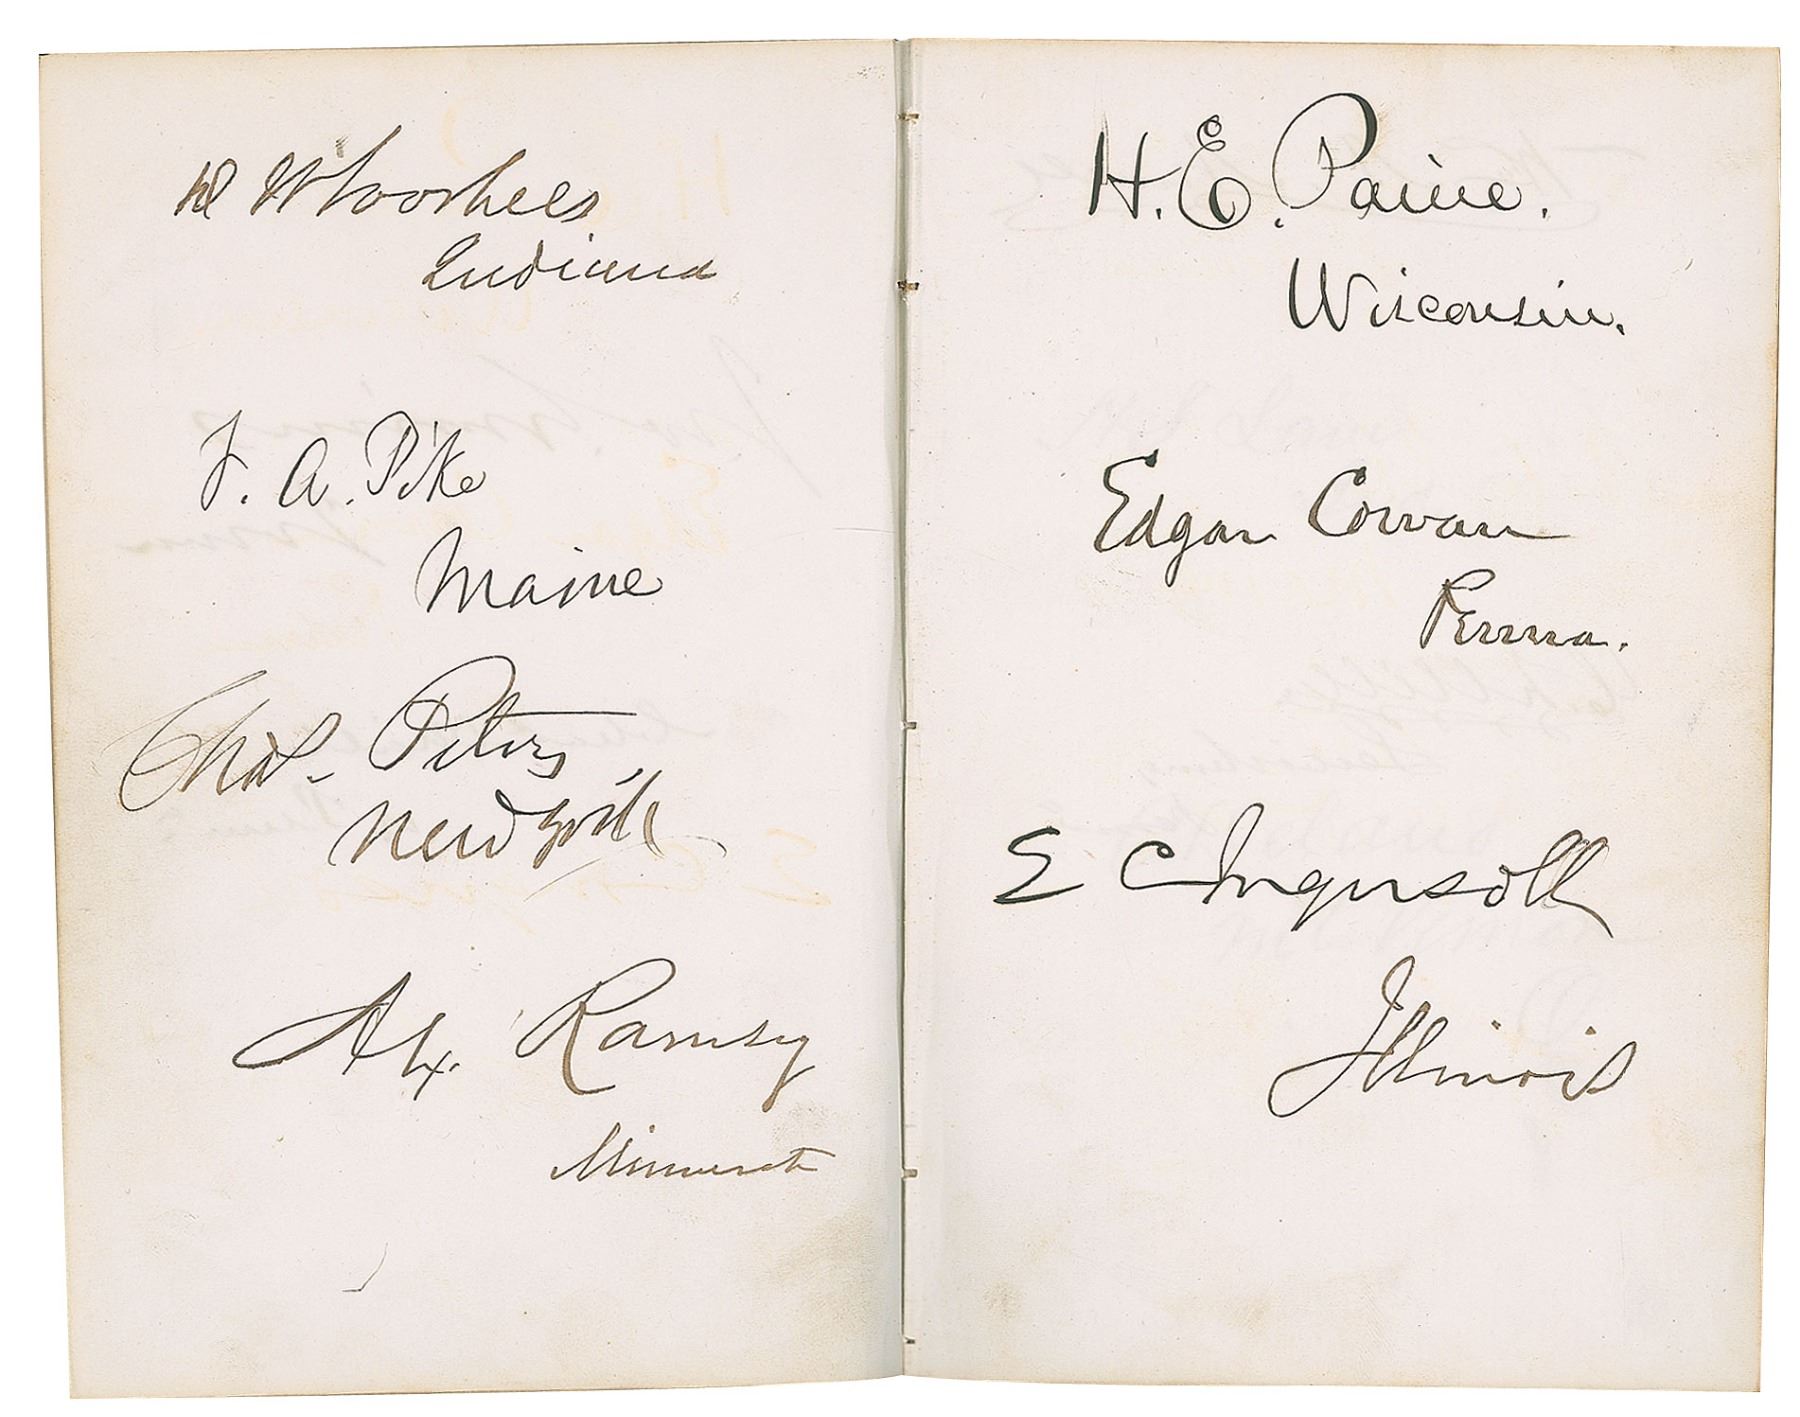 D W Voorhees
Indiana
F. A. Pike
Maine
Chas. Peters
New York
Alx. Ramsey
Minnesota
H. E. Paine.
Wisconsin.
Edgar Cowan
Penna.
E C Ingersoll
Illinois